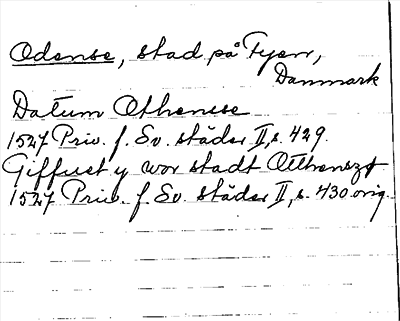 Odense, stad på Fyen,
Danmark
Datum Othense
1527 Priv. f. Sv. städer II, s. 429.
Giffust y wor stadt Otthensz
1527 Priv. f. Sv. städer II, s. 430 orig.